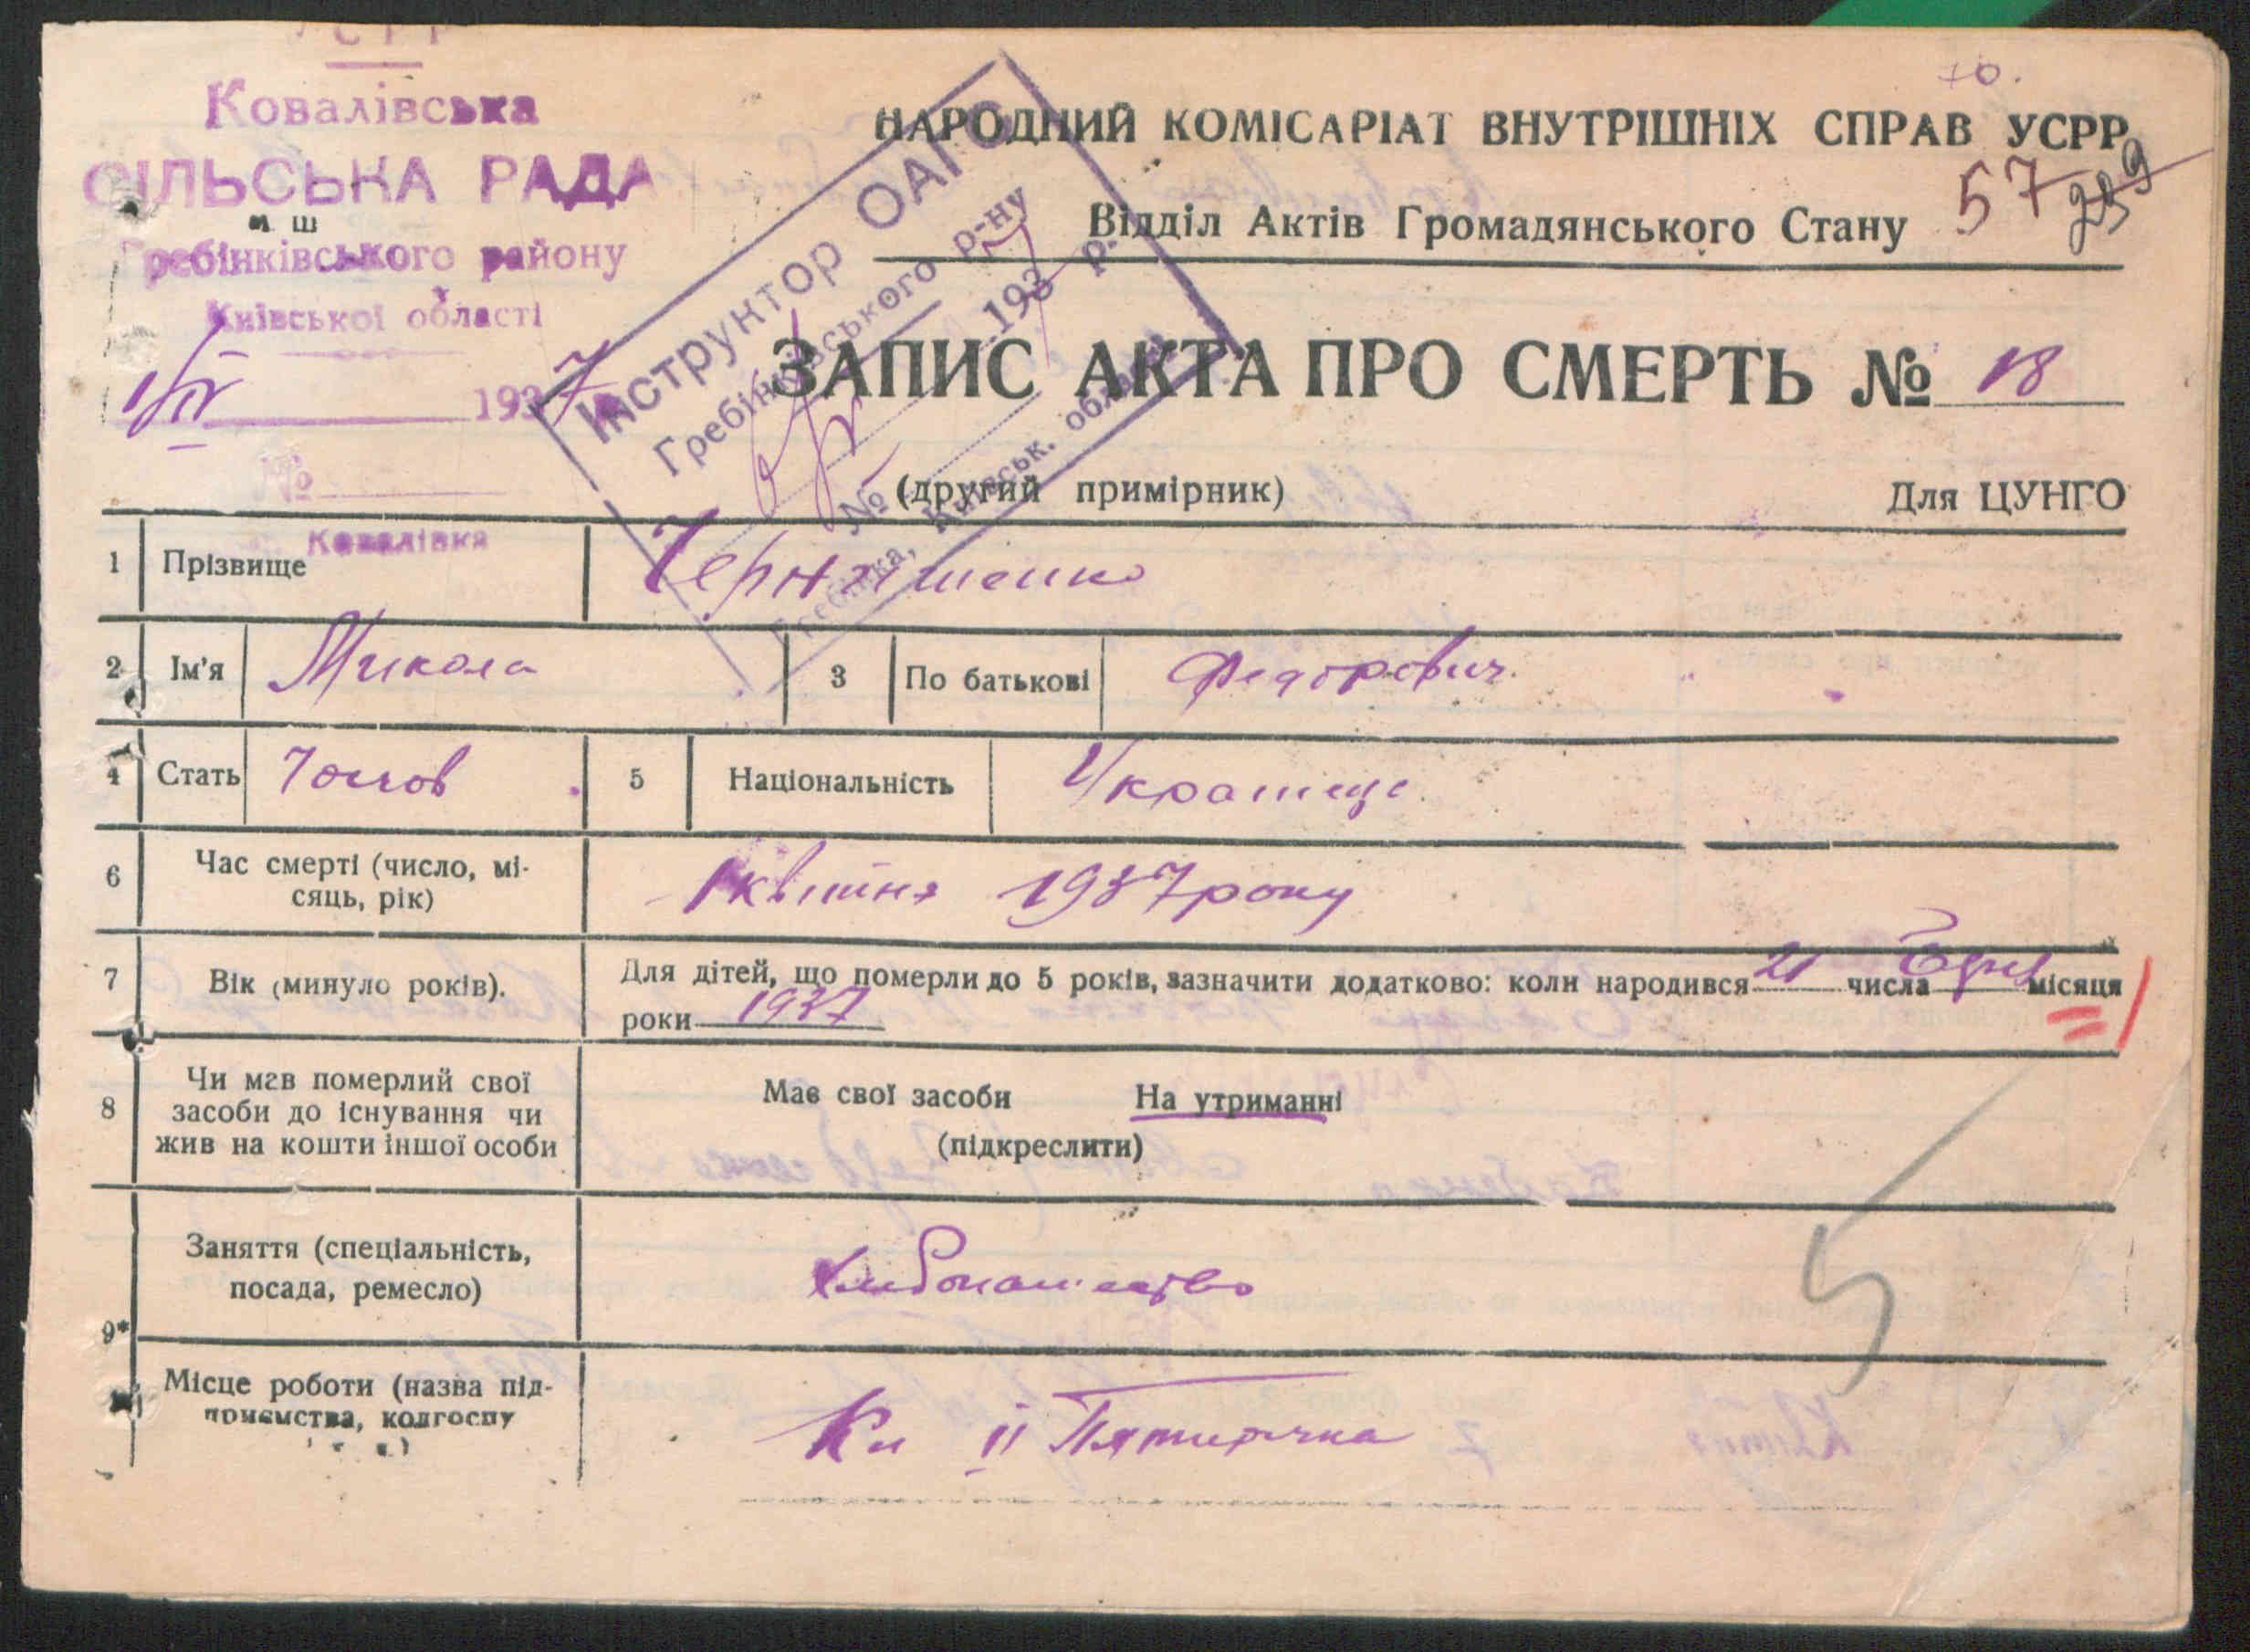 УСРР
Ковалівська
СІЛЬСЬКА РАДА
Гребінківського району
Київської області
1/IV 1937
№
Ковалівка
70.
НАРОДНИЙ КОМІСАРІАТ ВНУТРІШНІХ СПРАВ УСРР
Відділ Актів Громадянського Стану 57
Інструктор ОАГС
Гребінківського р-ну
1937 р.
№
Гребінка, Київськ. області
ЗАПИС АКТА ПРО СМЕРТЬ № 18
(другий примірник) Для ЦУНГО
1 Прізвище
2 Ім'я Микола 3 По батькові Федорович
4 Стать Чолов 5 Національність Украинец
6 Час смерті (число, мі-
сяць, рік) 1 квітня 1937 року
7 Вік (минуло років). Для дітей, що померли до 5 років, зазначити додатково: коли народився 21 числа місяця
роки 1937
8 Чи мав померлий свої
засоби до існування чи
жив на кошти іншої особи
Має свої засоби На утриманні
(підкреслити)
9*
Заняття (спеціальність,
посада, ремесло)
Місце роботи (назва під-
приємства, колгоспу
і т. д.)
Кл II Пятирічка